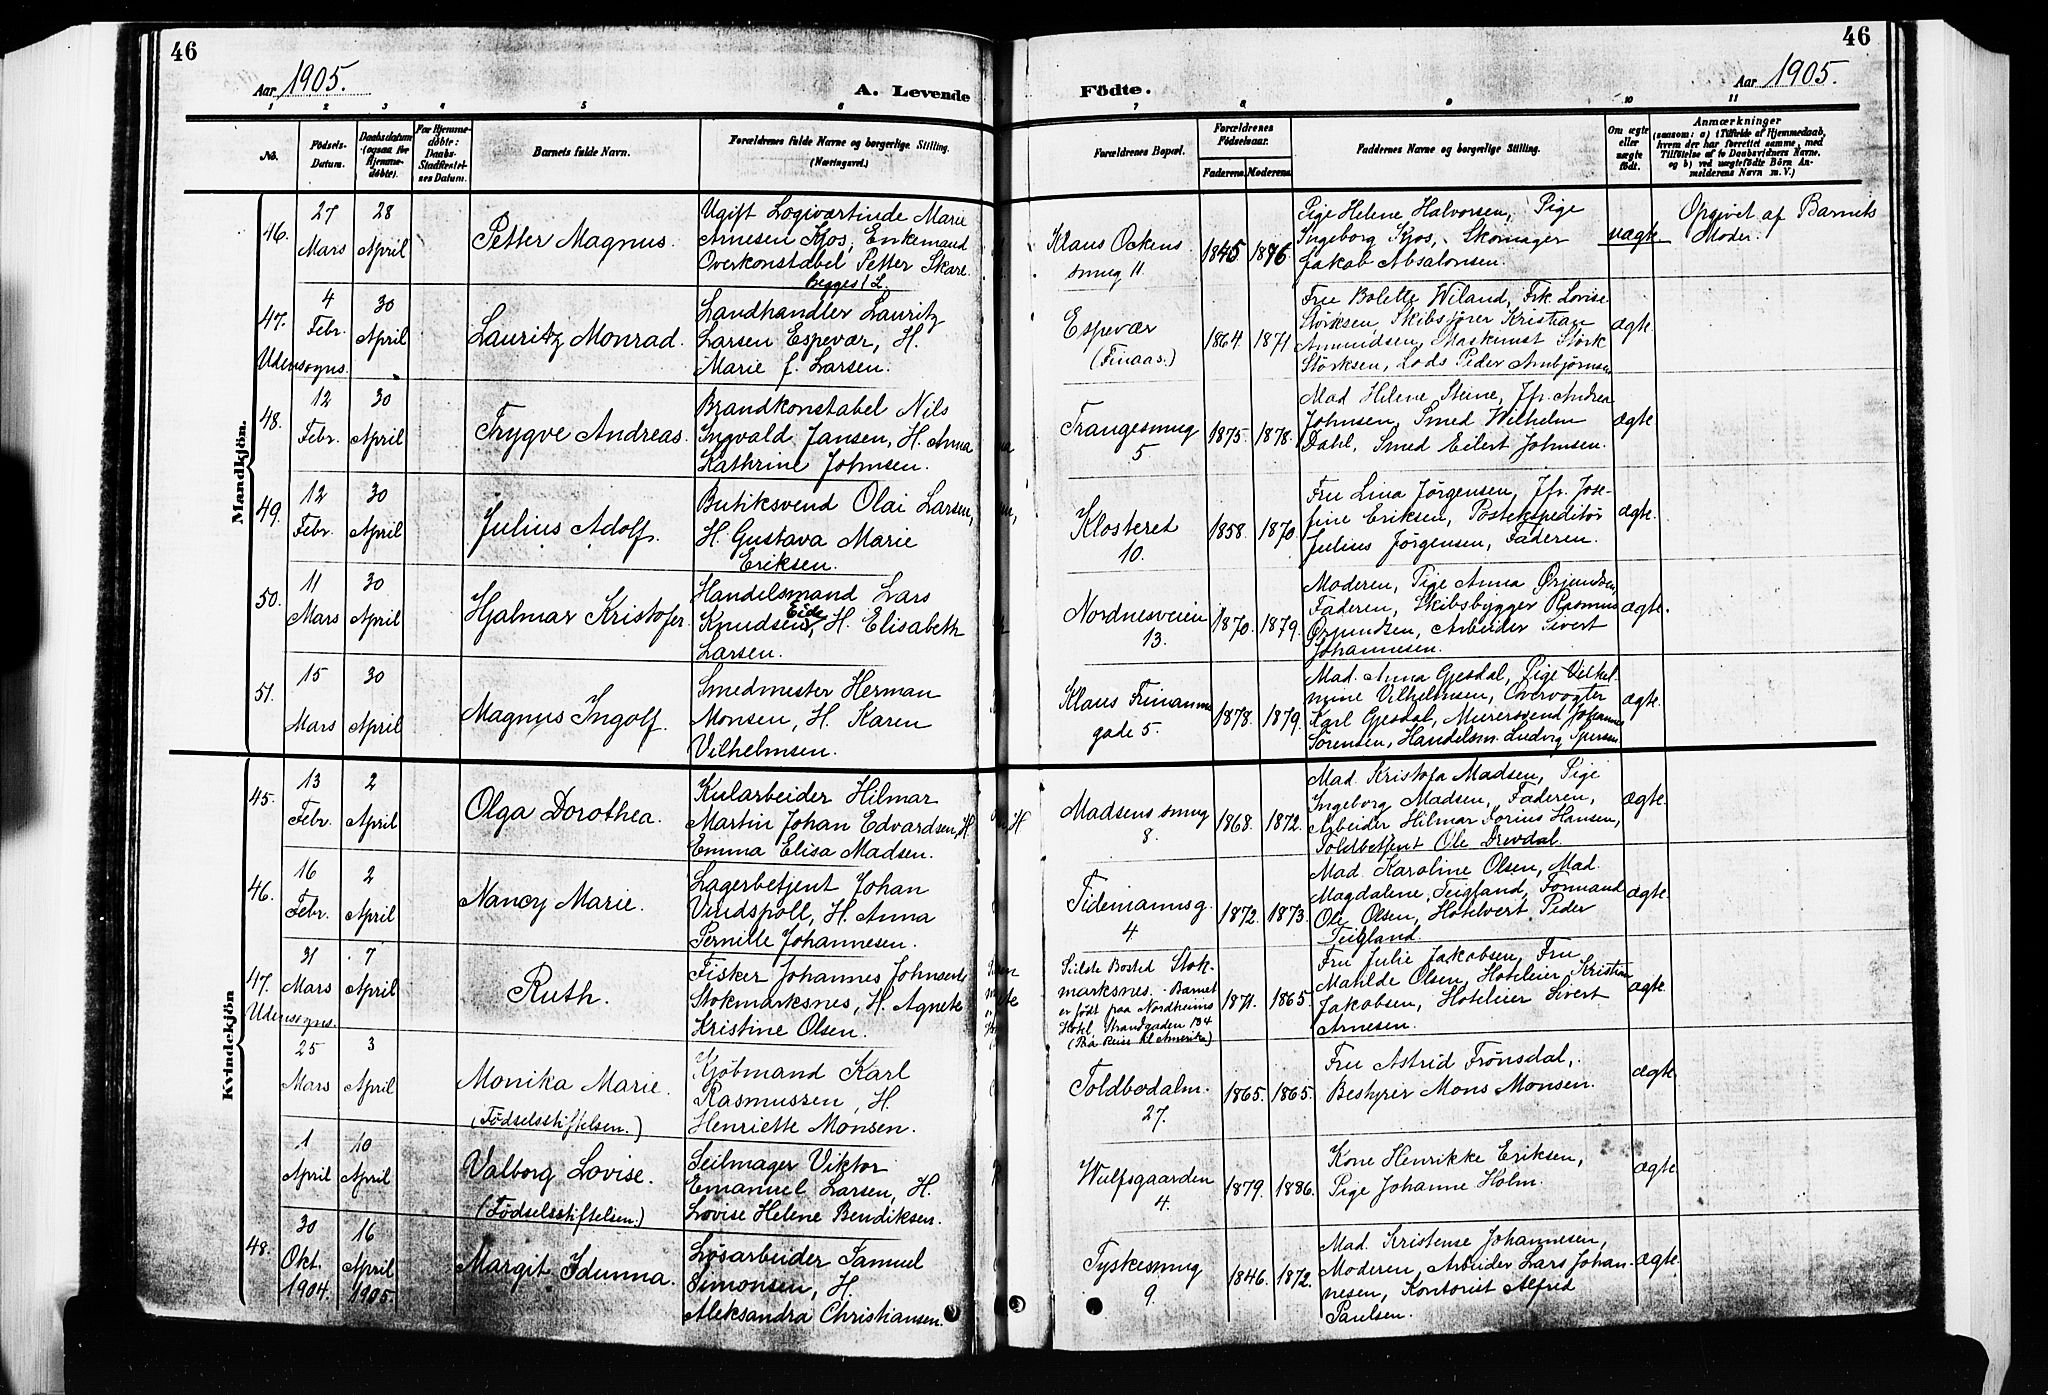 46
Aar 1905.
A. Levende
1 2 3 4 5 6
No.
Födsels-Datum.
Daabsdatum (ogsaa för Hjemme-döbte).
For Hjemme-döbte: Daabs-Stadfæstel-ses Datum.
Barnets fulde Navn.
Forældrenes fulde Navne og borgerlige Stilling.
(Næringsvei.)
Mandkjön.
46.
27 Mars
28 April
Petter Magnus.
Ugift Logiværtinde Marie
Arnesen Kjos, Enkemand
Overkonstabel Petter Skare.
Begges 1 L.
47.
Udensogns.
4 Febr.
30 April
Lauritz Monrad.
Landhandler Lauritz
Larsen Espevær, H.
Marie f. Larsen.
48.
12 Febr.
30 April
Trygve Andreas.
Brandkonstabel Nils
Ingvald Jansen, H. Anna
Kathrine Johnsen.
49.
12 Febr.
30 April
Julius Adolf.
Butiksvend Olai Larsen,
H. Gustava Marie
Eriksen.
50.
11 Mars
30 April
Hjalmar Kristofer
Handelsmand Lars
Knudsen Eide, H. Elisabeth
Larsen.
51.
15 Mars
30 April
Magnus Ingolf.
Smedmester Herman
Monsen, H. Karen
Vilhelmsen.
Kvindekjön
45.
13 Febr.
2 April
Olga Dorothea.
Kularbeider Hilmar
Martin Johan Edvardsen, H.
Emma Elisa Madsen.
46.
16 Febr.
2 April
Nancy Marie.
Lagerbetjent Johan
Vindspoll, H. Anna
Pernille Johannesen.
47.
Udensogns.
31 Mars
7 April
Ruth.
Fisker Johannes Johnsen
Stokmarksnes, H. Agnete
Kristine Olsen.
25 Mars
3 April
Monika Marie.
(Födselsstiftelsen.)
Kjöbmand Karl
Rasmussen, H.
Henriette Monsen.
1 April
10 April
Valborg Lovise.
(Födselsstiftelsen.)
Seilmager Viktor
Emanuel Larsen, H.
Lovise Helene Bendiksen.
48.
30 Okt. 1904.
16 April 1905.
Margit Idunna.
Løsarbeider Samuel
Simonsen, H.
Aleksandra Christiansen.
46
Aar 1905.
Födte.
7 8 9 10 11
Forældrenes Bopæl.
Forældrenes Födselsaar.
Faderens. Moderens.
Faddernes Navne og borgerlige Stilling.
Om ægte eller uægte födt.
Anmærkninger
(saasom: a) i Tilfælde af Hjemmedaab,
hvem der har forrettet samme, med
Tilföielse af to Daabsvidners Navne,
og b) ved uægtefödte Börn An-
melderens Navn m. V.)
Klaus Ockens
smug 11.
1845 1876.
Pige Helene Halvorsen, Pige
Ingeborg Kjos, Skomager
Jakob Absalonsen.
uægte.
Opgivet af Barnets
Moder.
Espevær
(Finaas.)
1864. 1871
Fru Bolette Wiland, Frk. Lovise
Störksen, Skibsförer Kristian
Amundsen, Maskinist Störk
Störksen, Lods Peder Arnbjørnsen
ægte.
Trangesmug
5
1875. 1878.
Mad Helene Steine, Jfr. Andrea
Johnsen, Smed Wilhelm
Dahl, Smed Eilert Johnsen.
ægte
Klosteret
10.
1858. 1870.
Fru Lina Jørgensen, Jfr. Jose-
fine Eriksen, Postekspeditör
Julius Jørgensen, Faderen.
ægte.
Nordnesveien
13.
1870. 1879.
Moderen, Pige Anna Ørjundsen,
Faderen, Skibsbygger Rasmus
Ørjundsen, Arbeider Sivert
Johannesen.
ægte.
Klaus Finanne
gade 5.
1878. 1879.
Mad. Anna Gjesdal, Pige Vilhel-
mine Vilhelmsen, Overvogter
Karl Gjesdal, Murersvend Johannes
Sörensen, Handelsm. Ludvig Ipersen
ægte.
Madsens smug
8.
1868. 1872.
Mad. Kristofa Madsen, Pige
Ingeborg Madsen, Faderen,
Arbeider Hilmar Dorius Hansen,
Toldbetjent Ole Drevdal.
ægte.
Tidemannsg.
4.
1872. 1873.
Mad. Karoline Olsen, Mad.
Magdalene Teigland, Formand
Ole Olsen, Hotelvert Peder
Teigland.
ægte.
Sidste Bosted Stok-
marksnes. Barnet
er född paa Nordheims
Hotel, Strandgaden 134
(Paa Reise til Amerika)
1871. 1865.
Fru Julie Jakobsen, Fru
Mathilde Olsen, Hoteleier Kristian
Jakobsen, Hoteleier Sivert
Arnesen.
ægte
Toldbodalm.
27.
1865. 1865.
Fru Astrid Frønsdal,
Bestyrer Mons Monsen.
ægte.
Wulfsgaarden
4.
1879. 1886.
Kone Henrikke Eriksen,
Pige Johanne Holm.
ægte
Tyskesmug
9.
1846. 1872.
Mad. Kristense Johannesen,
Moderen, Arbeider Lars Johan-
nesen, Kontorist Alfred
Paulsen.
ægte.